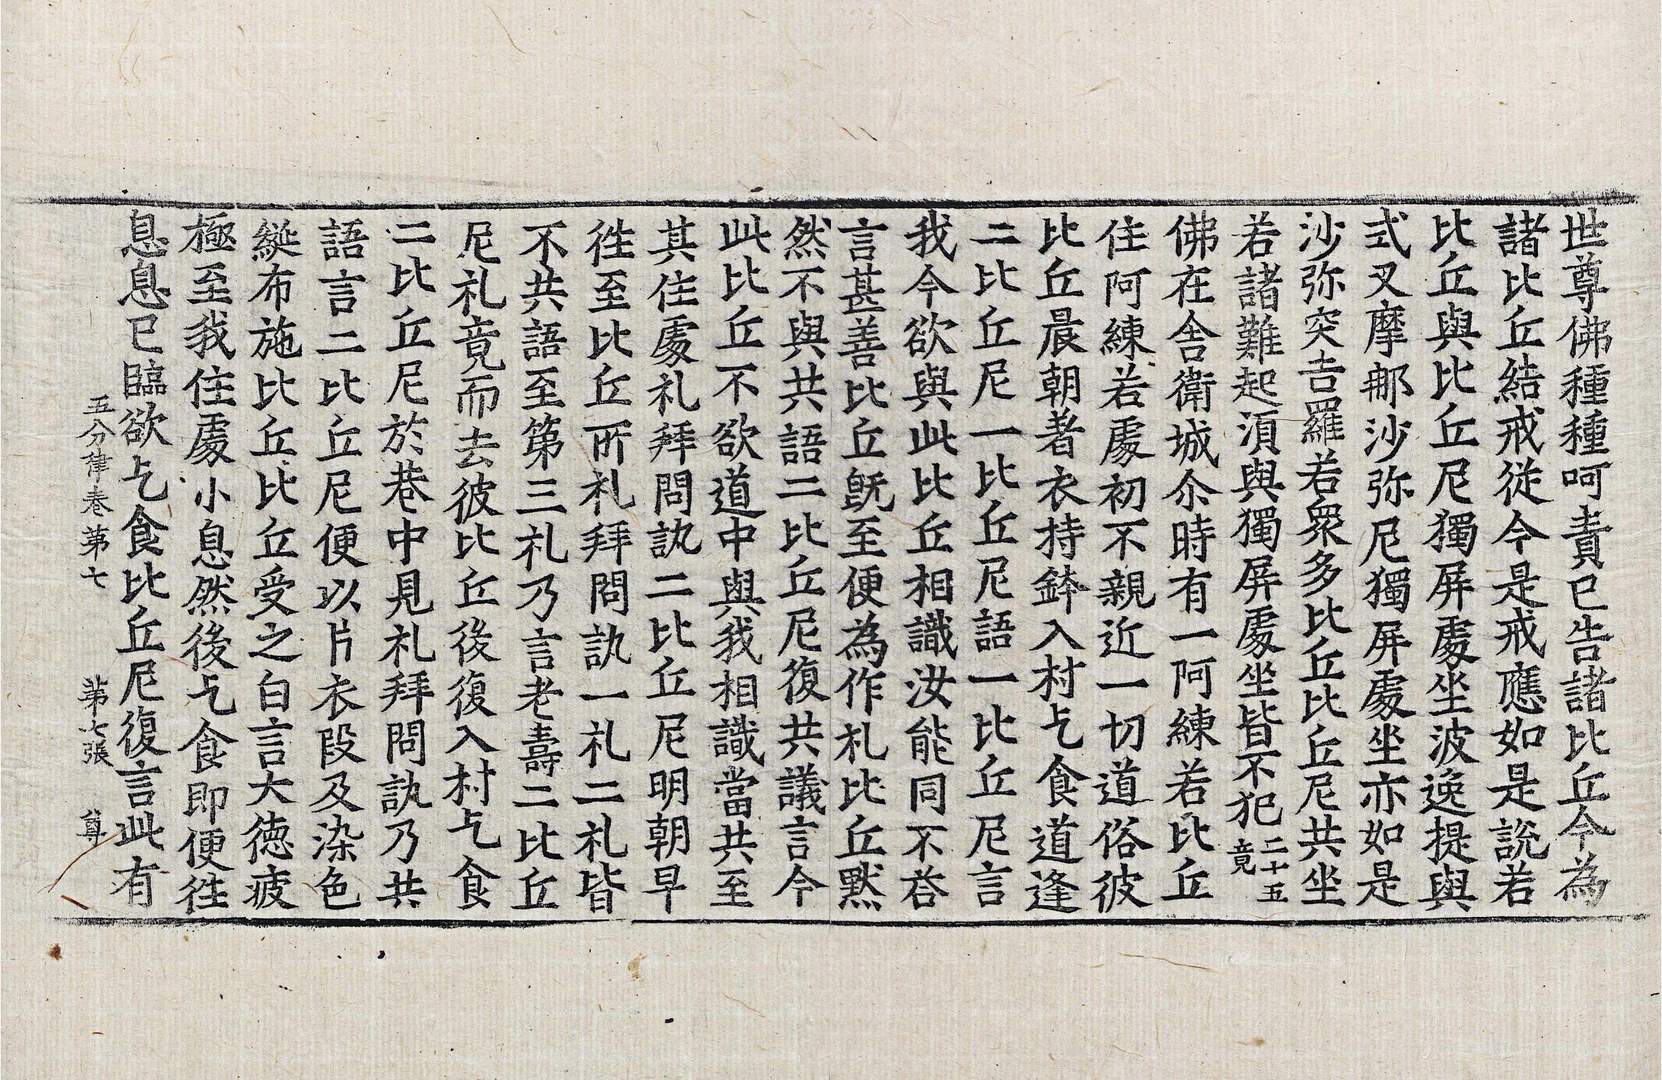 世尊佛種種呵責已告諸比丘今為
諸比丘結戒從今是戒應如是說若
比丘與比丘尼獨屏處坐波逸提與
式叉摩那沙弥尼獨屏處坐亦如是
沙弥突吉羅若衆多比丘比丘尼共坐
若諸難起湏與獨屏處坐皆不犯二十五竟
佛在舍衛城尒時有一阿練若比丘
住阿練若處初不親近一切道俗彼
比丘晨朝著衣持鉢入村乞食道逢
二比丘尼一比丘尼語一比丘尼言
我今欲與此比丘相識汝能同不荅
言甚善比丘旣至便為作礼比丘默
然不與共語二比丘尼復共議言今
此比丘不欲道中與我相識當共至
其住處礼拜問訊二比丘尼明朝早
徃至比丘所礼拜問訊一礼二礼皆
不共語至第三礼乃言老壽二比丘
尼礼竟而去彼比丘後復入村乞食
二比丘尼於巷中見礼拜問訊乃共
語言二比丘尼便以片衣段及染色
綖布施比丘比丘受之白言大德疲
極至我住處小息然後乞食即便徃
息息已臨欲乞食比丘尼復言此有
五分律卷第七 第七張 尊